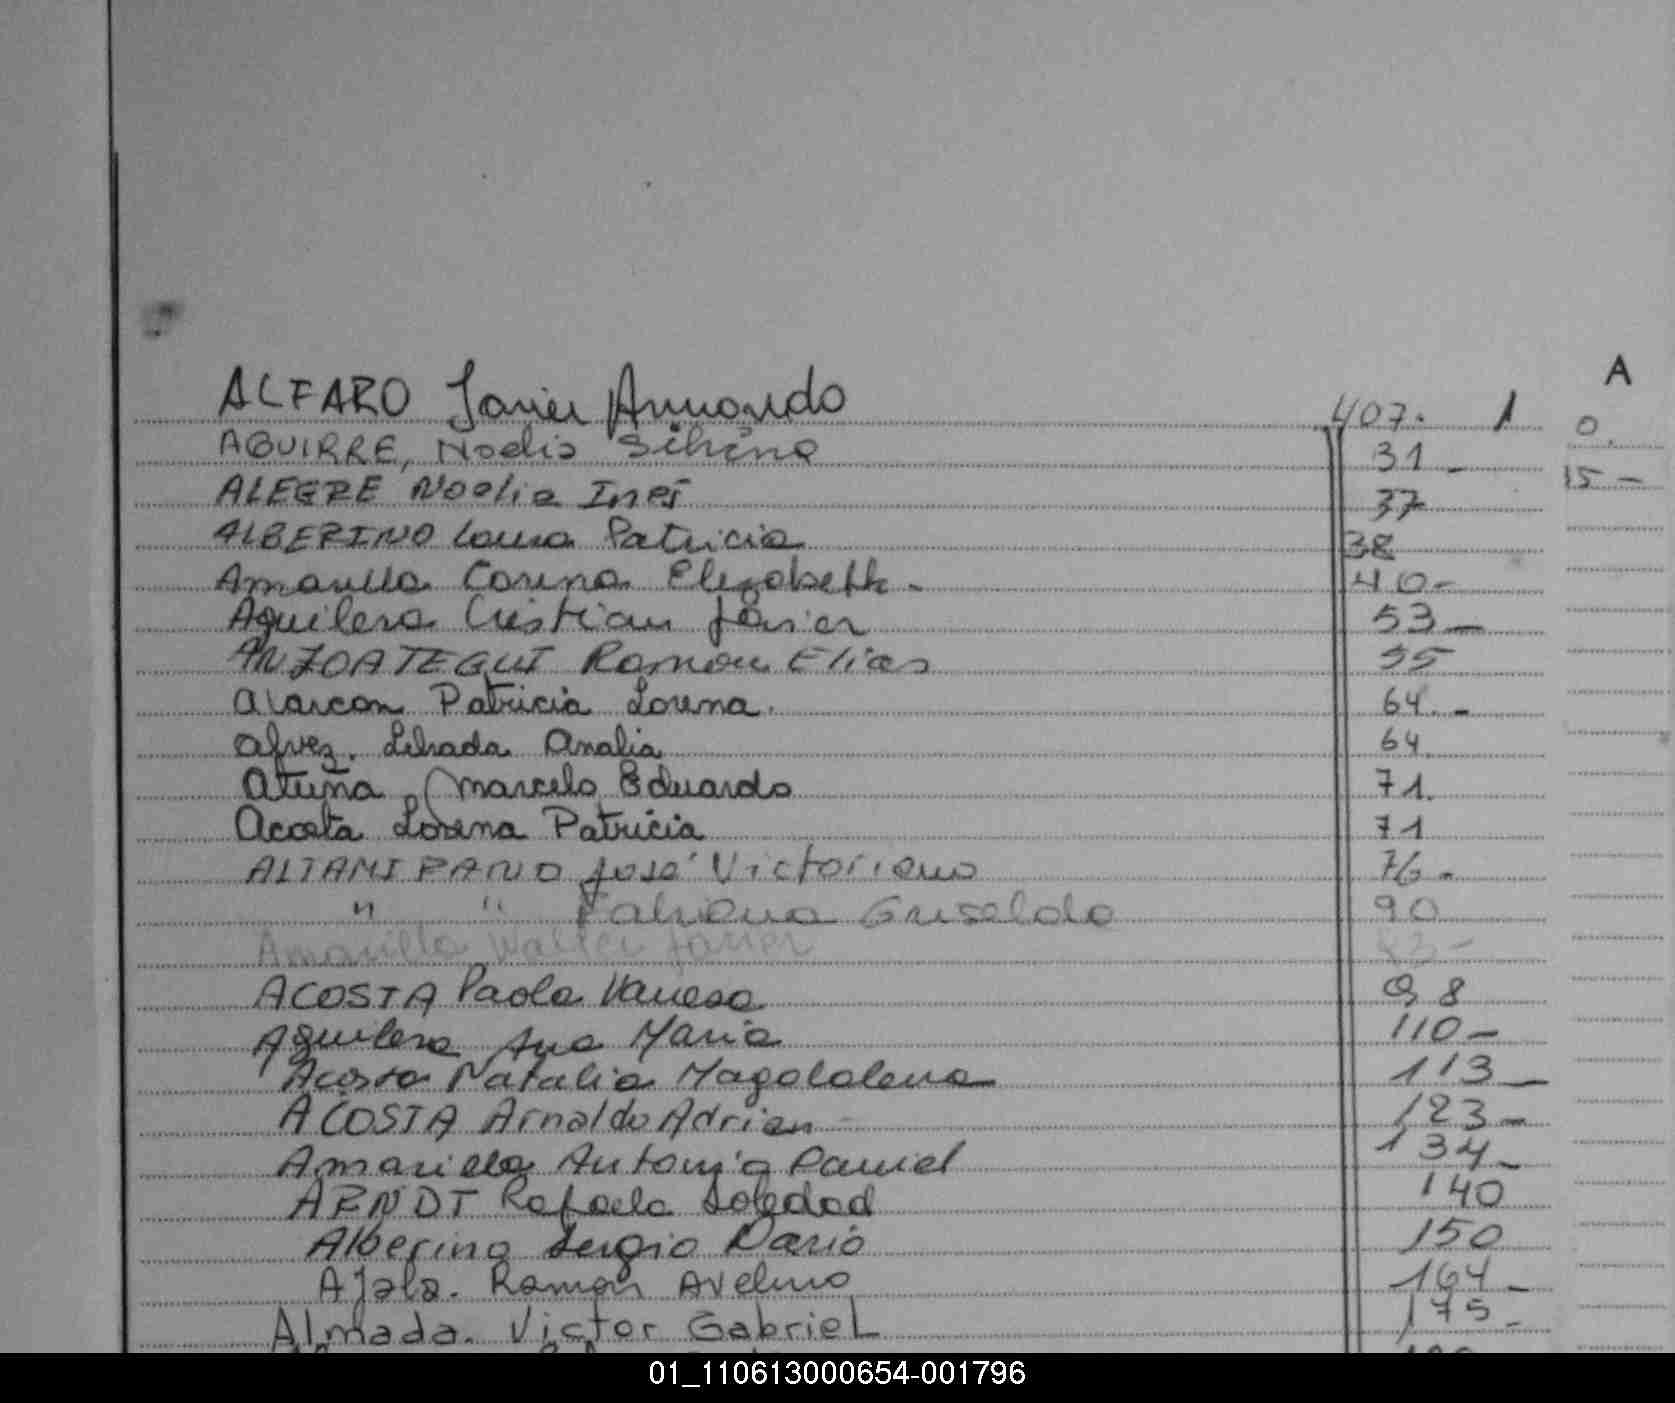 A
ALFARO Javier Armando 407. 1 0.
AGUIRRE, Noelia Silvina 31 - 15 -
ALEGRE Noelia Inés 37
ALBERINO Laura Patricia 38
Amarilla Carina Elizabeth. 40-
Aguilera Cristian Javier 53-
ANZOATEGUI Ramon Elias 55
Alarcon Patricia Lorena. 64. -
Alvez. Librada Analia 64.
Atuña, Marcelo Eduardo 71.
Acosta Lorena Patricia 71
ALTAMIRANO José Victoriano 76.
" " Fabiana Griselda 90
Amarilla Walter Javier 93-
ACOSTA Paola Vanesa 98
Aguilera Ana Maria 110-
Acosta Natalia Magdalena 113-
ACOSTA Arnaldo Adrian 123-
Amarilla Antonio Daniel 134-
ARNDT Rafaela Soledad 140
Alberino Sergio Dario 150
Ajala. Ramon Avelino 164-
Almada. Victor Gabriel 175-
01_110613000654-001796